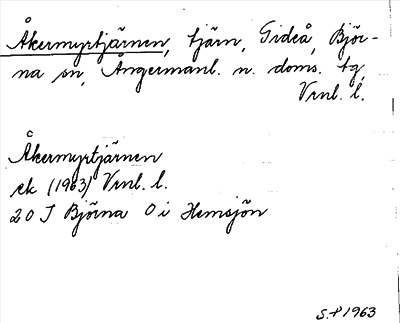 Åkermyrtjärnen, tjärn, Gideå, Björ-
na sn, Ångermanl. n. doms. tg,
Vrnl. l.
Åkermyrtjärnen
ek (1963) Vrnl. l.
20 J Björna O i Hemsjön
S.P 1963